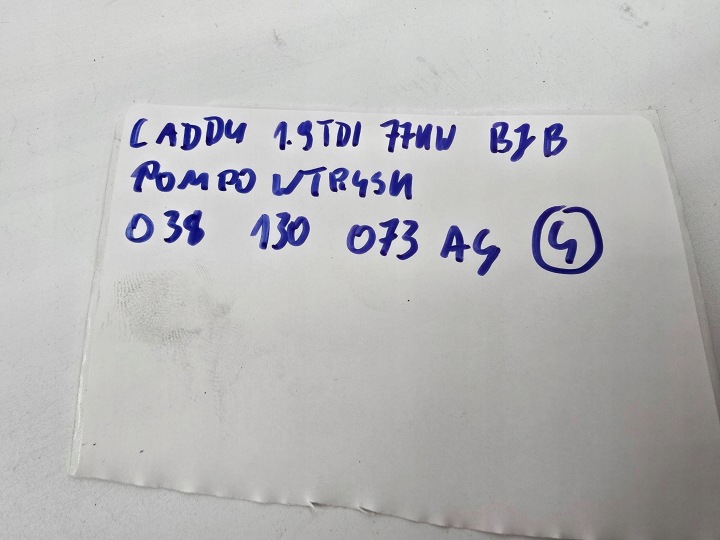 CADDY 1.9TDI 77KW BJB
POMPO WTRYSK
038 130 073 AG G